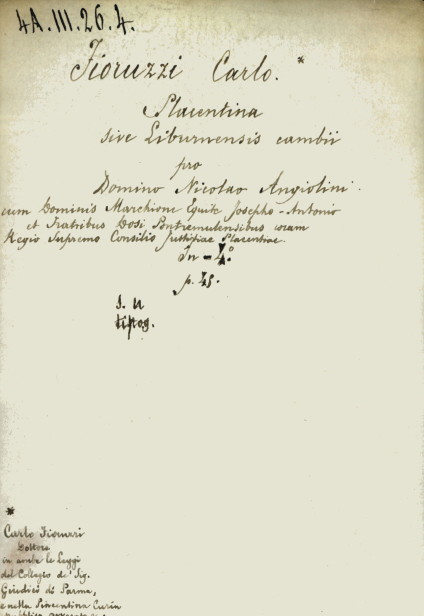 4A.III.26.4.
Fioruzzi Carlo.*
Placentina
sive Liburnensis cambii
pro
Domino Nicolao Angiolini.
cum Dominis Marchione Equite Josepho-Antonio
et Fratribus Dosi Pontremulensibus coram
Regio Supremo Consilio Justitiae Placentiae.
In - 4.°
p. 45.
S. n
tipog.
*
Carlo Fioruzzi
Dottore
in ambe le Leggi
del Collegio de' Sig.
Giudici di Parma,
e nella Piacentina Curia